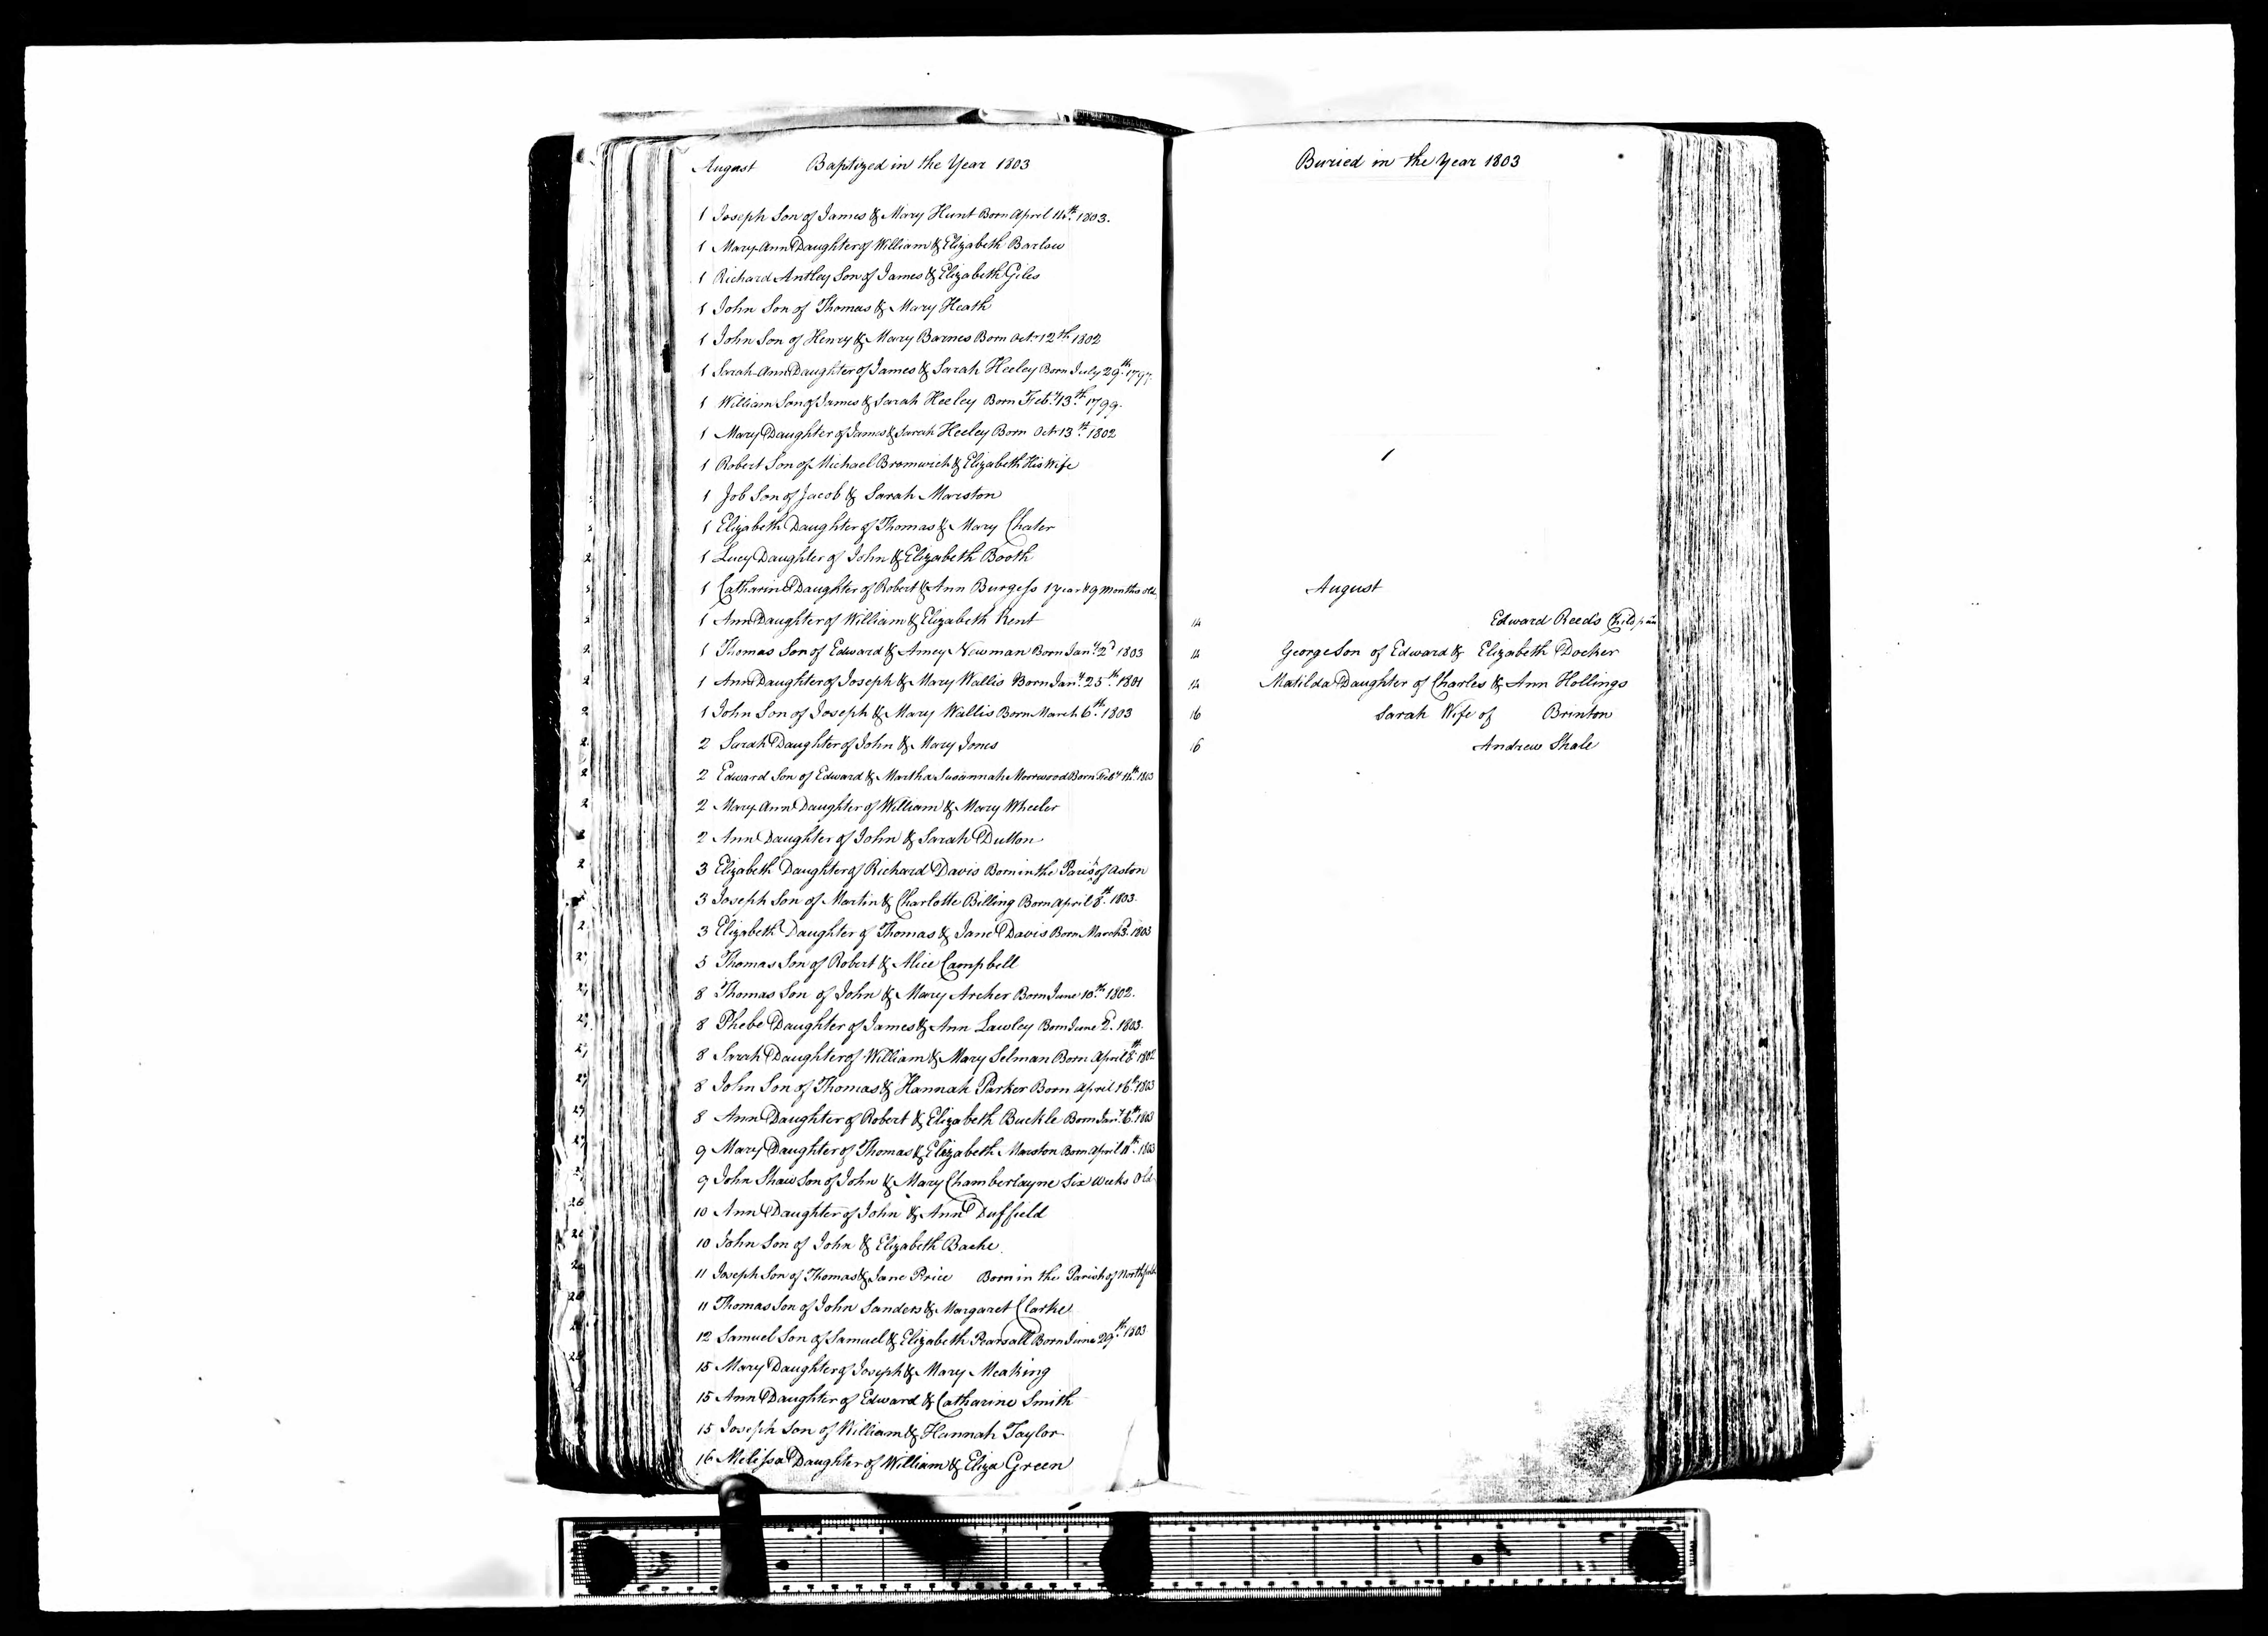 August Baptized in the Year 1803
1 Joseph Son of James & Mary Hunt Born April 14th. 1803.
1 Mary Ann Daughter of William & Elizabeth Barlow
1 Richard Antley Son of James & Elizabeth Giles
1 John Son of Thomas & Mary Heath
1 John Son of Henry & Mary Barnes Born Octr 12th 1802
1 Sarah Ann Daughter of James & Sarah Heeley Born July 29th. 1797.
1 William Son of James & Sarah Heeley Born Feby. 13th. 1799.
1 Mary Daughter of James & Sarah Heeley Born Octr 13th. 1802
1 Robert Son of Michael Bromwich & Elizabeth His Wife
1 Job Son of Jacob & Sarah Marston
1 Elizabeth Daughter of Thomas & Mary Chater
1 Lucy Daughter of John & Elizabeth Booth
1 Catharine Daughter of Robert & Ann Burgess 1 year & 9 Months old
1 Ann Daughter of William & Elizabeth Kent
1 Thomas Son of Edward & Amey Newman Born Jany. 2d 1803
1 Ann Daughter of Joseph & Mary Wallis Born Jany. 25th. 1801
1 John Son of Joseph & Mary Wallis Born March 6th. 1803
2 Sarah Daughter of John & Mary Jones
2 Edward Son of Edward & Martha Susannah Morrwood Born Feby 14th. 1803
2 Mary Ann Daughter of William & Mary Wheeler
2 Ann Daughter of John & Sarah Dutton
3 Elizabeth Daughter of Richard Davis Born in the Parish of Aston
3 Joseph Son of Martin & Charlotte Billing Born April 8th. 1803.
3 Elizabeth Daughter of Thomas & Jane Davis Born March 3d. 1803
5 Thomas Son of Robert & Alice Campbell
8 Thomas Son of John & Mary Archer Born June 10th. 1802.
8 Phebe Daughter of James & Ann Lawley Born June 2d. 1803.
8 Sarah Daughter of William & Mary Selman Born April 8th. 1802
8 John Son of Thomas & Hannah Parker Born April 16th. 1803
8 Ann Daughter of Robert & Elizabeth Buckle Born Jany. 6th. 1803
9 Mary Daughter of Thomas & Elizabeth Marston Born April 11th. 1803
9 John Shaw Son of John & Mary Chamberlayne Six Weeks Old
10 Ann Daughter of John & Ann Duffield
10 John Son of John & Elizabeth Bache
11 Joseph Son of Thomas & Jane Price Born in the Parish of Northfield
11 Thomas Son of John Sanders & Margaret Clarke
12 Samuel Son of Samuel & Elizabeth Pearsall Born June 29th. 1803
15 Mary Daughter of Joseph & Mary Meaking
15 Ann Daughter of Edward & Catharine Smith
15 Joseph Son of William & Hannah Taylor
16 Melissa Daughter of William & Eliza Green
Buried in the Year 1803
August
14 Edward Reeds Child
14 George Son of Edward & Elizabeth Docker
14 Matilda Daughter of Charles & Ann Hollings
16 Sarah Wife of Brinton
16 Andrew Shale